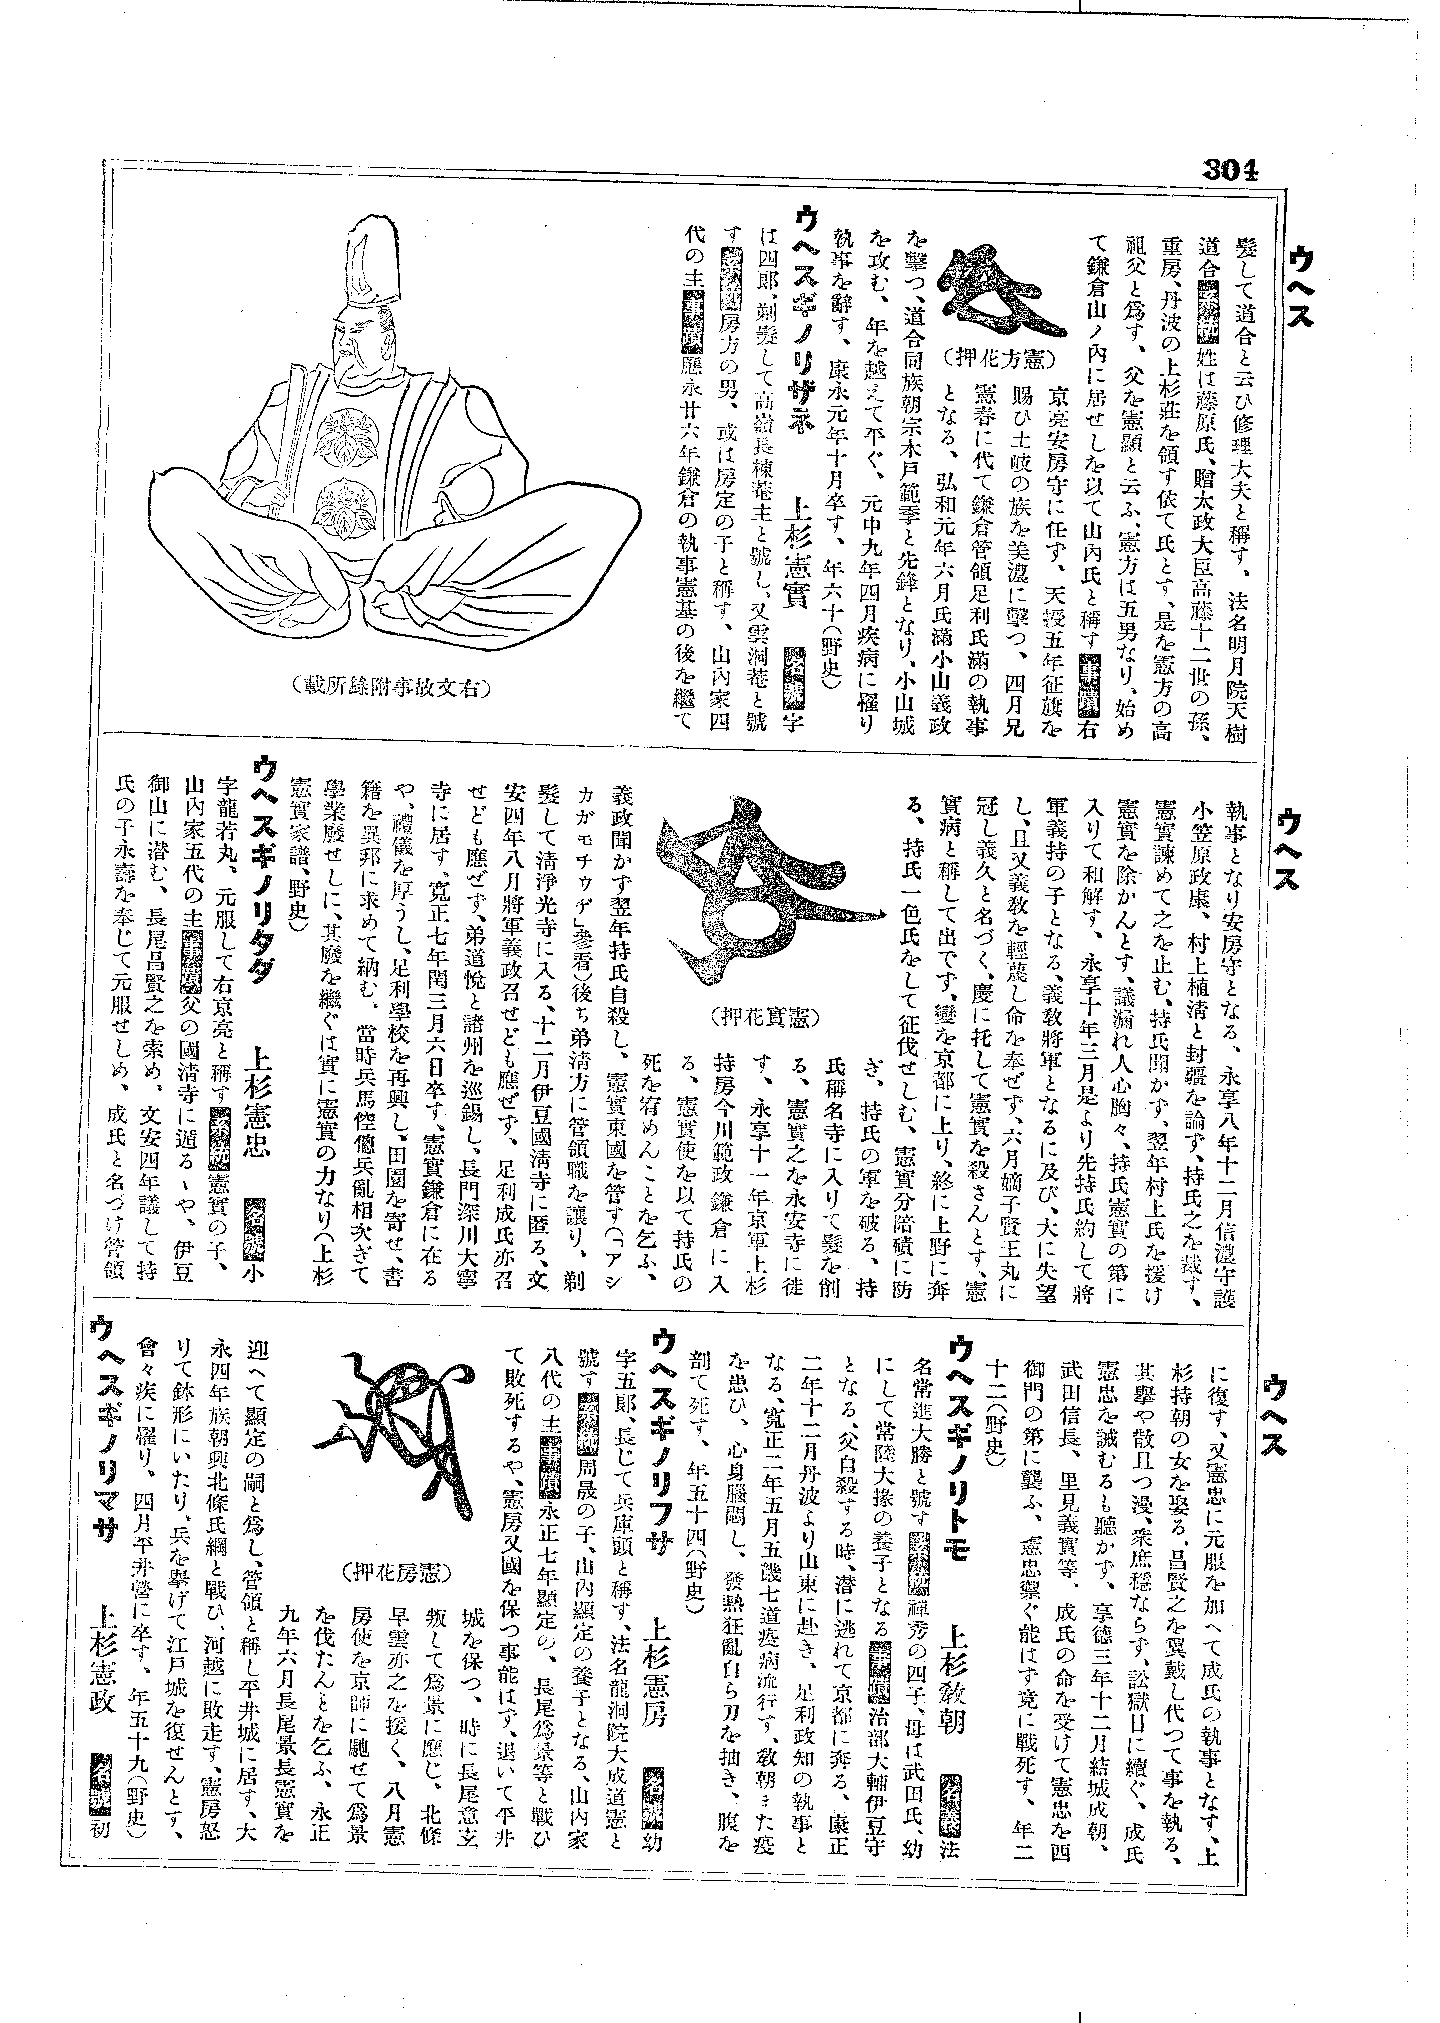 304
ウヘス
髮して道合と云ひ修理大夫と稱す、法名明月院天樹
道合姓は藤原氏、贈太政大臣高藤十二世の孫、
重房、丹波の上杉莊を領す依て氏とす、是を憲方の高
祖父と爲す、父を憲顯と云ふ、憲方は五男なり、始め
て鎌倉山ノ內に居せしを以て山內氏と稱す事蹟右
(押花方憲)
京亮安房守に任ず、天授五年征旗を
賜ひ土岐の族を美濃に擊つ、四月兄
憲春に代て鎌倉管領足利氏滿の執事
となる、弘和元年六月氏滿小山義政
を擊つ、道合同族朝宗木戸範季と先鋒となり、小山城
を攻む、年を越えて平ぐ、元中九年四月疾病に罹り
執事を辭す、康永元年十月卒す、年六十(野史)
ウヘスギノリザネ 上杉憲實 名號字
は四郎、剃髮して高嶽長棟菴主と號し、又雲洞菴と號
す房方の男、或は房定の子と稱す、山內家四
代の主事蹟應永廿六年鎌倉の執事憲基の後を繼て
(載所錄附事故文右)
ウヘス
執事となり安房守となる、永享八年十二月信濃守護
小笠原政康、村上植淸と封疆を論ず、持氏之を裁す、
憲實諫めて之を止む、持氏聞かず、翌年村上氏を援け
憲實を除かんとす、議漏れ人心胸々、持氏憲實の第に
入りて和解す、永享十年三月是より先持氏約して將
軍義持の子となる、義敎將軍となるに及び、大に失望
し、且又義敎を輕蔑し命を奉ぜず、六月嫡子賢王丸に
冠し義久と名づく、慶に托して憲實を殺さんとす、憲
實病と稱して出でず、變を京都に上り、終に上野に奔
る、持氏一色氏をして征伐せしむ、憲實分陪磧に防
(押花實憲)
ぎ、持氏の軍を破る、持
氏稱名寺に入りて髮を削
る、憲實之を永安寺に徙
す、永享十一年京軍上杉
持房今川範政鎌倉に入
る、憲實使を以て持氏の
死を宥めんことを乞ふ、
義政聞かず翌年持氏自殺し、憲實東國を管す(「アシ
カガモチウヂ」參看)後ち弟淸方に管領職を讓り、剃
髮して淸淨光寺に入る、十二月伊豆國淸寺に匿る、文
安四年八月將軍義政召せども應ぜず、足利成氏亦召
せども應ぜず、弟道悅と諸州を巡錫し、長門深川大寧
寺に居す、寬正七年閏三月六日卒す、憲實鎌倉に在る
や、禮儀を厚うし、足利學校を再興し、田園を寄せ、書
籍を異邦に求めて納む、當時兵馬倥傯兵亂相次ぎて
學業廢せしに、其廢を繼ぐは實に憲實の力なり(上杉
憲實家譜、野史)
ウヘスギノリタダ 上杉憲忠 名號小
字龍若丸、元服して右京亮と稱す憲實の子、
山內家五代の主事蹟父の國淸寺に遁るゝや、伊豆
御山に潛む、長尾昌賢之を索め、文安四年議して持
氏の子永壽を奉じて元服せしめ、成氏と名づけ管領
ウヘス
に復す、又憲忠に元服を加へて成氏の執事となす、上
杉持朝の女を娶る、昌賢之を翼戴し代つて事を執る、
其擧や散且つ漫、衆庶穩ならず、訟獄日に續ぐ、成氏
憲忠を誡むるも聽かず、享德三年十二月結城成朝、
武田信長、里見義實等、成氏の命を受けて憲忠を西
御門の第に襲ふ、憲忠禦ぐ能はず竟に戰死す、年二
十二(野史)
ウヘスギノリトモ 上杉敎朝 名號法
名常進大勝と號す禪秀の四子、母は武田氏、幼
にして常陸大掾の養子となる事蹟治部大輔伊豆守
となる、父自殺する時、潛に逃れて京都に奔る、康正
二年十二月丹波より山東に赴き、足利政知の執事と
なる、寬正二年五月五畿七道疫病流行す、敎朝また疫
を患ひ、心身腦悶し、發熱狂亂自ら刀を抽き、腹を
剖て死す、年五十四(野史)
ウヘスギノリフサ 上杉憲房 名號幼
字五郎、長じて兵庫頭と稱す、法名龍洞院大成道憲と
號す周晟の子、山內顯定の養子となる、山內家
八代の主事蹟永正七年顯定の、長尾爲景等と戰ひ
て敗死するや、憲房又國を保つ事能はず、退いて平井
(押花房憲)
城を保つ、時に長尾意玄
叛して爲景に應じ、北條
早雲亦之を援く、八月憲
房使を京師に馳せて爲景
を伐たんとを乞ふ、永正
九年六月長尾景長憲實を
迎へて顯定の嗣と爲し、管領と稱し平井城に居す、大
永四年族朝興北條氏綱と戰ひ、河越に敗走す、憲房怒
りて鉢形にいたり、兵を擧げて江戸城を復せんとす、
會々疾に罹り、四月平井營に卒す、年五十九(野史)
ウヘスギノリマサ 上杉憲政 名號初